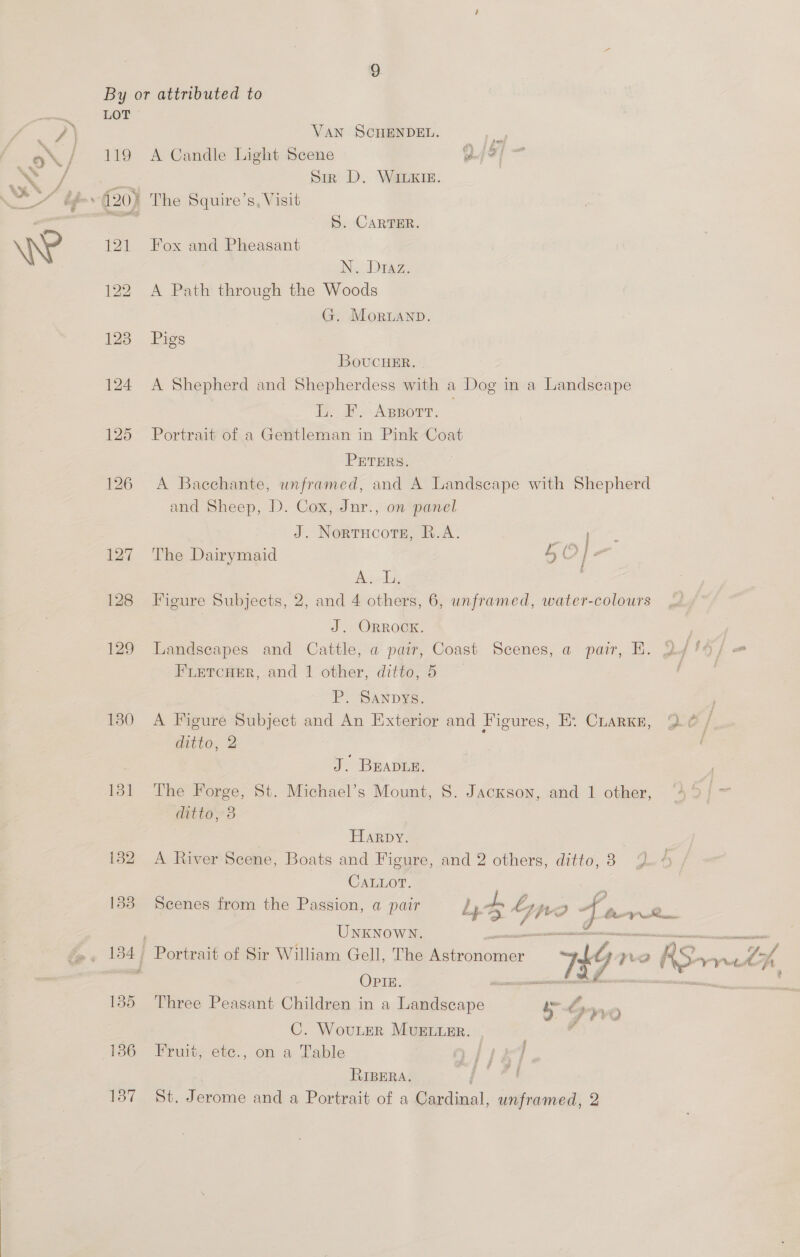 9
By or attributed to
LOT
VAN SCHENDEL.
119 A Candle Light Scene
SIR D. WILKIE.
120 The Squire's Visit
S. CARTER.
121 Fox and Pheasant
N. DIAZ.
122 A Path through the Woods
G. MORLAND.
123 Pigs
BOUCHER.
124 A Shepherd and Shepherdess with a Dog in a Landscape
L. F. ABBOTT.
125 Portrait of a Gentleman in Pink Coat
PETERS.
126 A Bacchante, unframed, and A Landscape with Shepherd
and Sheep, D. Cox, Jnr., on panel
J. NORTHCOTE, R.A.
127 The Dairymaid 50/-
A. L.
128 Figure Subjects, 2, and 4 others, 6, unframed, water-colours
J. ORROCK.
129 Landscapes and Cattle, a pair, Coast Scenes, a pair, E.
FLETCHER, and 1 other, ditto, 5
P. SANDYS.
130 A Figure Subject and An Exterior and Figures, E. CLARKE,
ditto, 2
J. BEADLE.
131 The Forge, St. Michael's Mount, S. JACKSON, and 1 other,
ditto, 3
HARDY.
132 A River Scene, Boats and Figure, and 2 others, ditto, 3
CALLOT.
133 Scenes from the Passion, a pair
UNKNOWN.
134 Portrait of Sir William Gell, The Astronomer
OPIE.
135 Three Peasant Children in a Landscape
C. WOULER MUELLER.
136 Fruit, etc., on a Table
RIBERA.
137 St. Jerome and a Portrait of a Cardinal, unframed, 2